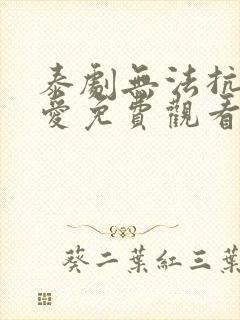 泰劇無法抗
愛免費觀看
葵二葉紅三葉